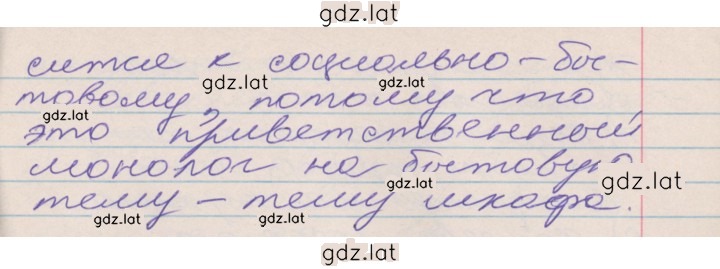 gdz.lat
сится к социально-бы-
gdz.lat gdz.lat
товому, потому что
gdz.lat
это приветственный
монолог на бытовую
gdz.lat gdz.lat
тему - тему шкафа.
gdz.lat gdz.lat
gdz.lat